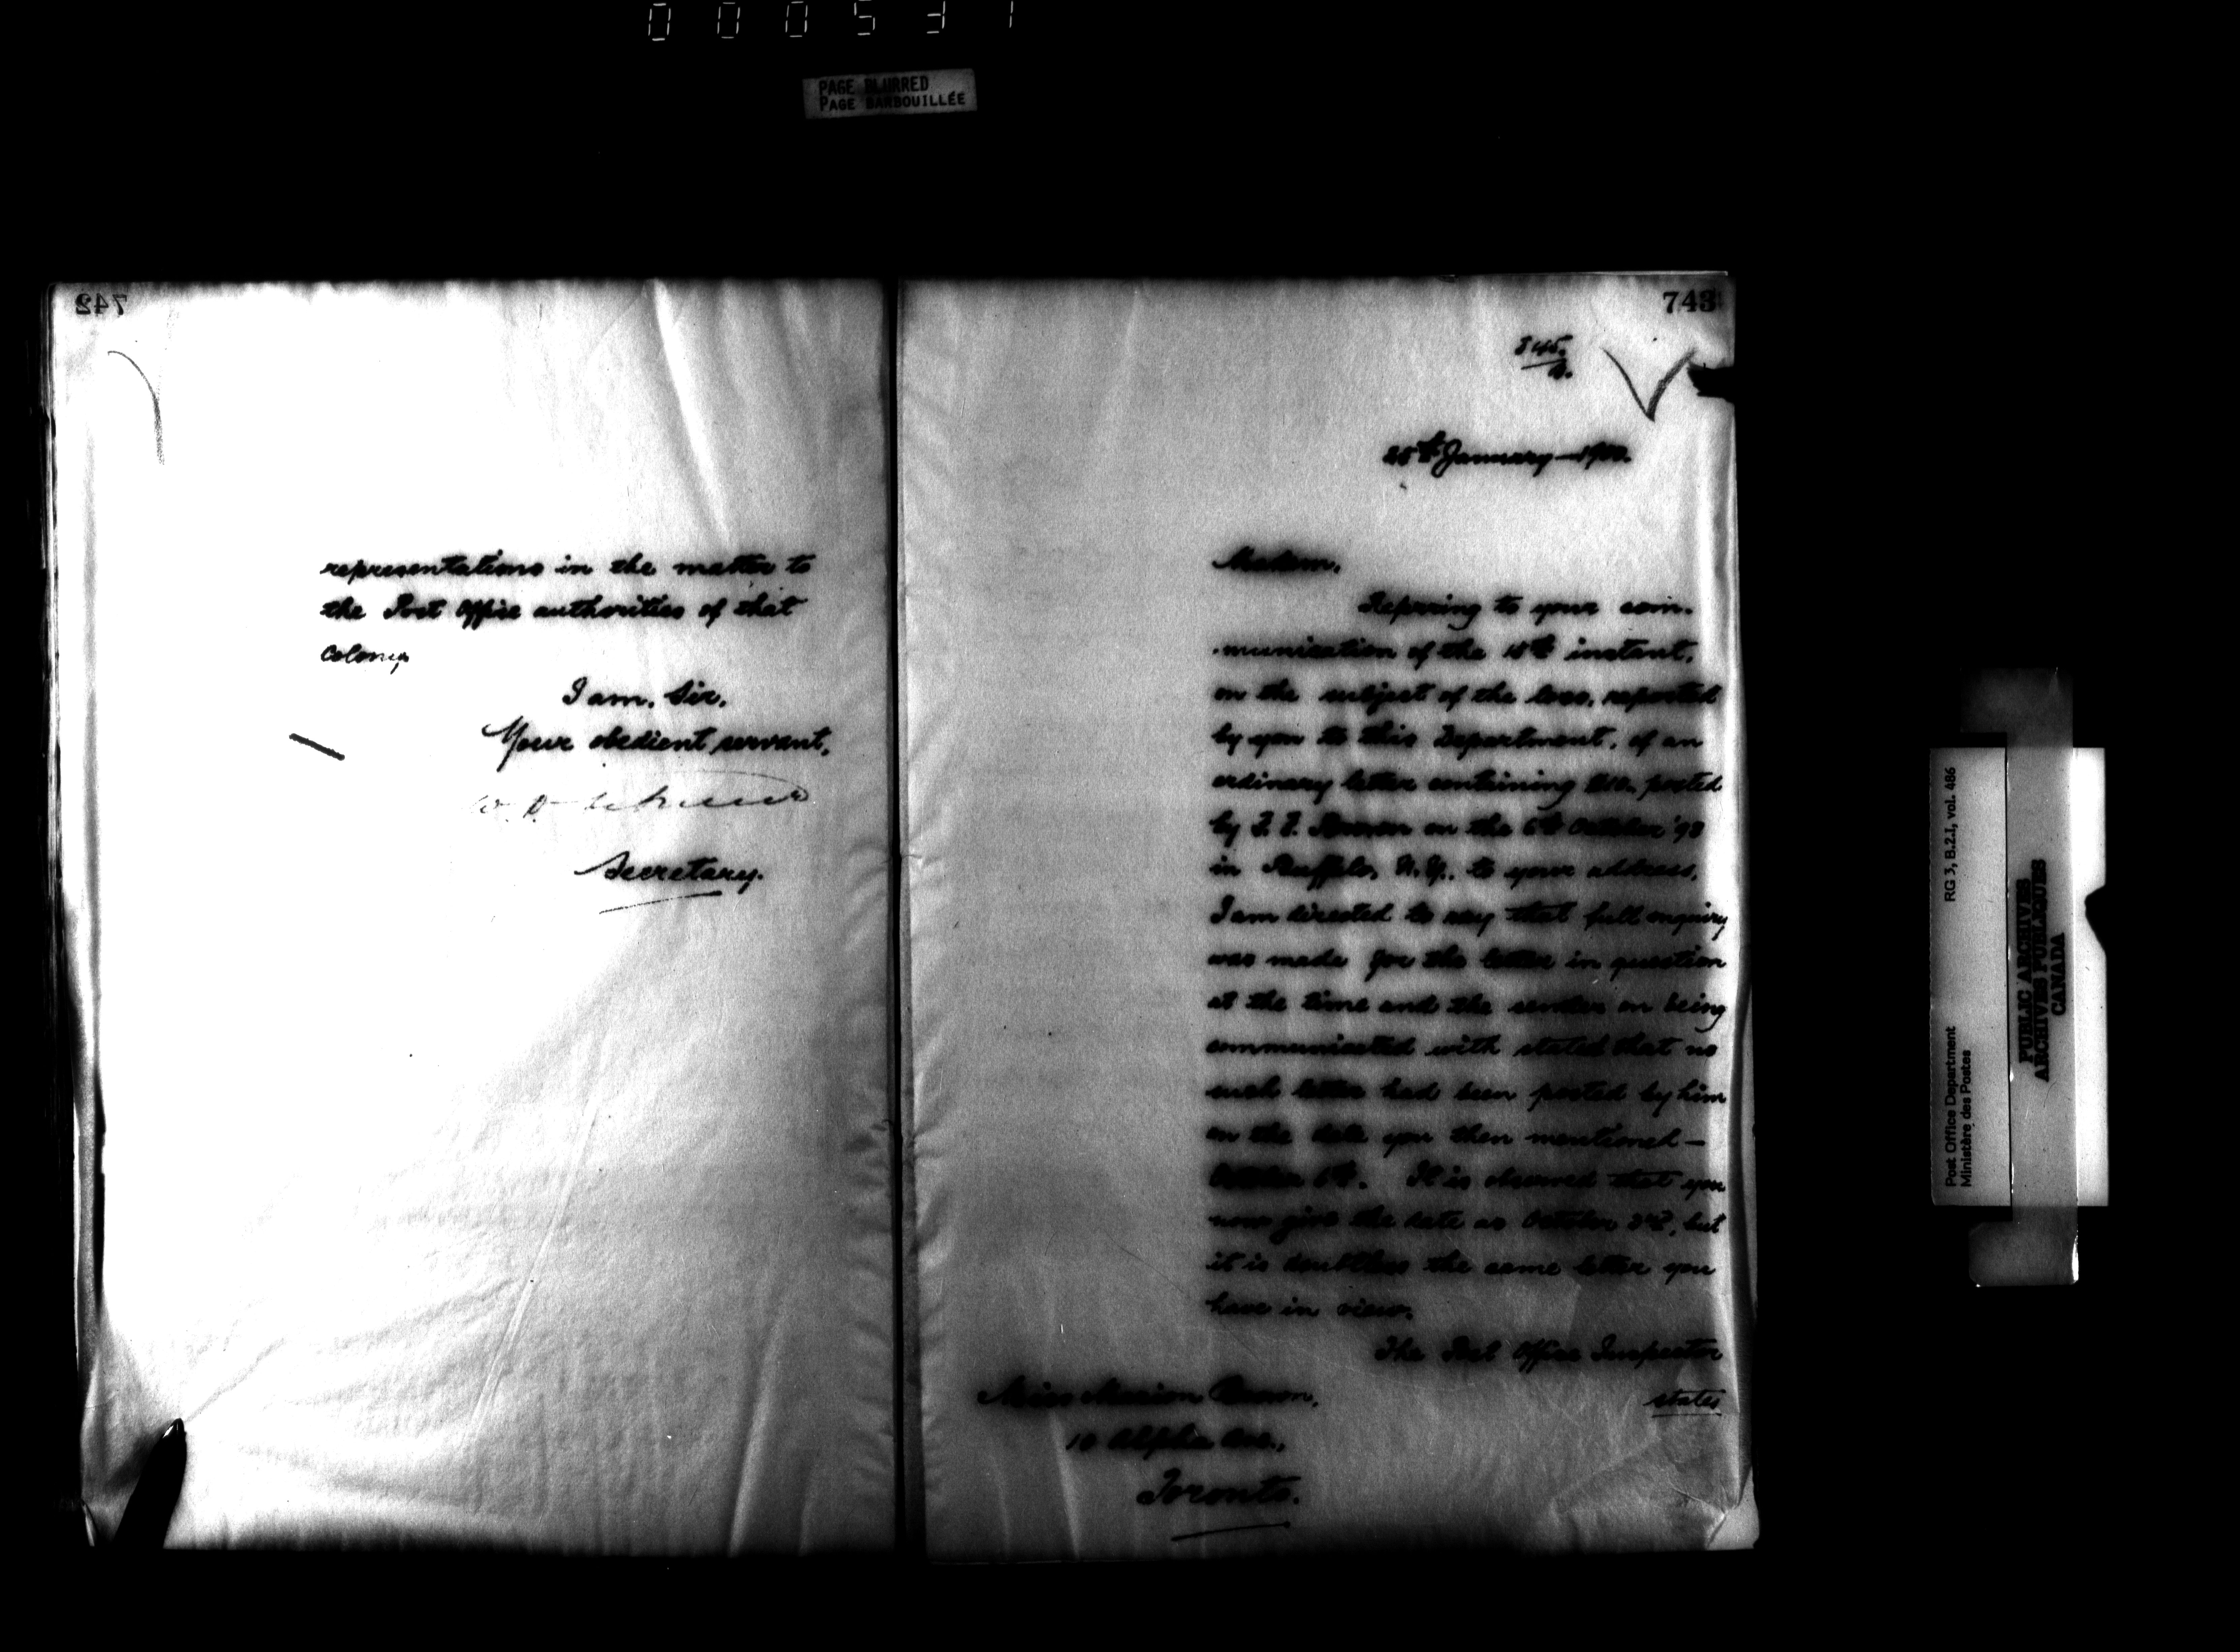 000531
PAGE BLURRED
PAGE BARBOUILLÉE
742
representations in the matter to
the Post Office authorities of that
colony.
I am, Sir,
Your obedient servant,
Secretary.
743
25th January 1900.
Madam,
Referring to your com-
munication of the 15th instant,
on the subject of the loss, reported
by you to this Department, of an
ordinary letter containing posted
by on the 6th October '98
in Buffalo, N.Y., to your address,
I am directed to say that full enquiry
was made for the letter in question
at the time and the sender on being
communicated with stated that no
such letter had been posted by him
on the date you then mentioned—
October 6th. It is observed that you
now give the date as October 3rd, but
it is doubtless the same letter you
have in view.
The Post Office Inspector
states
Miss Marion
10 Alpha Ave.,
Toronto.
Post Office Department
Ministère des Postes
RG 3, B.2.I, vol. 486
PUBLIC ARCHIVES
ARCHIVES PUBLIQUES
CANADA